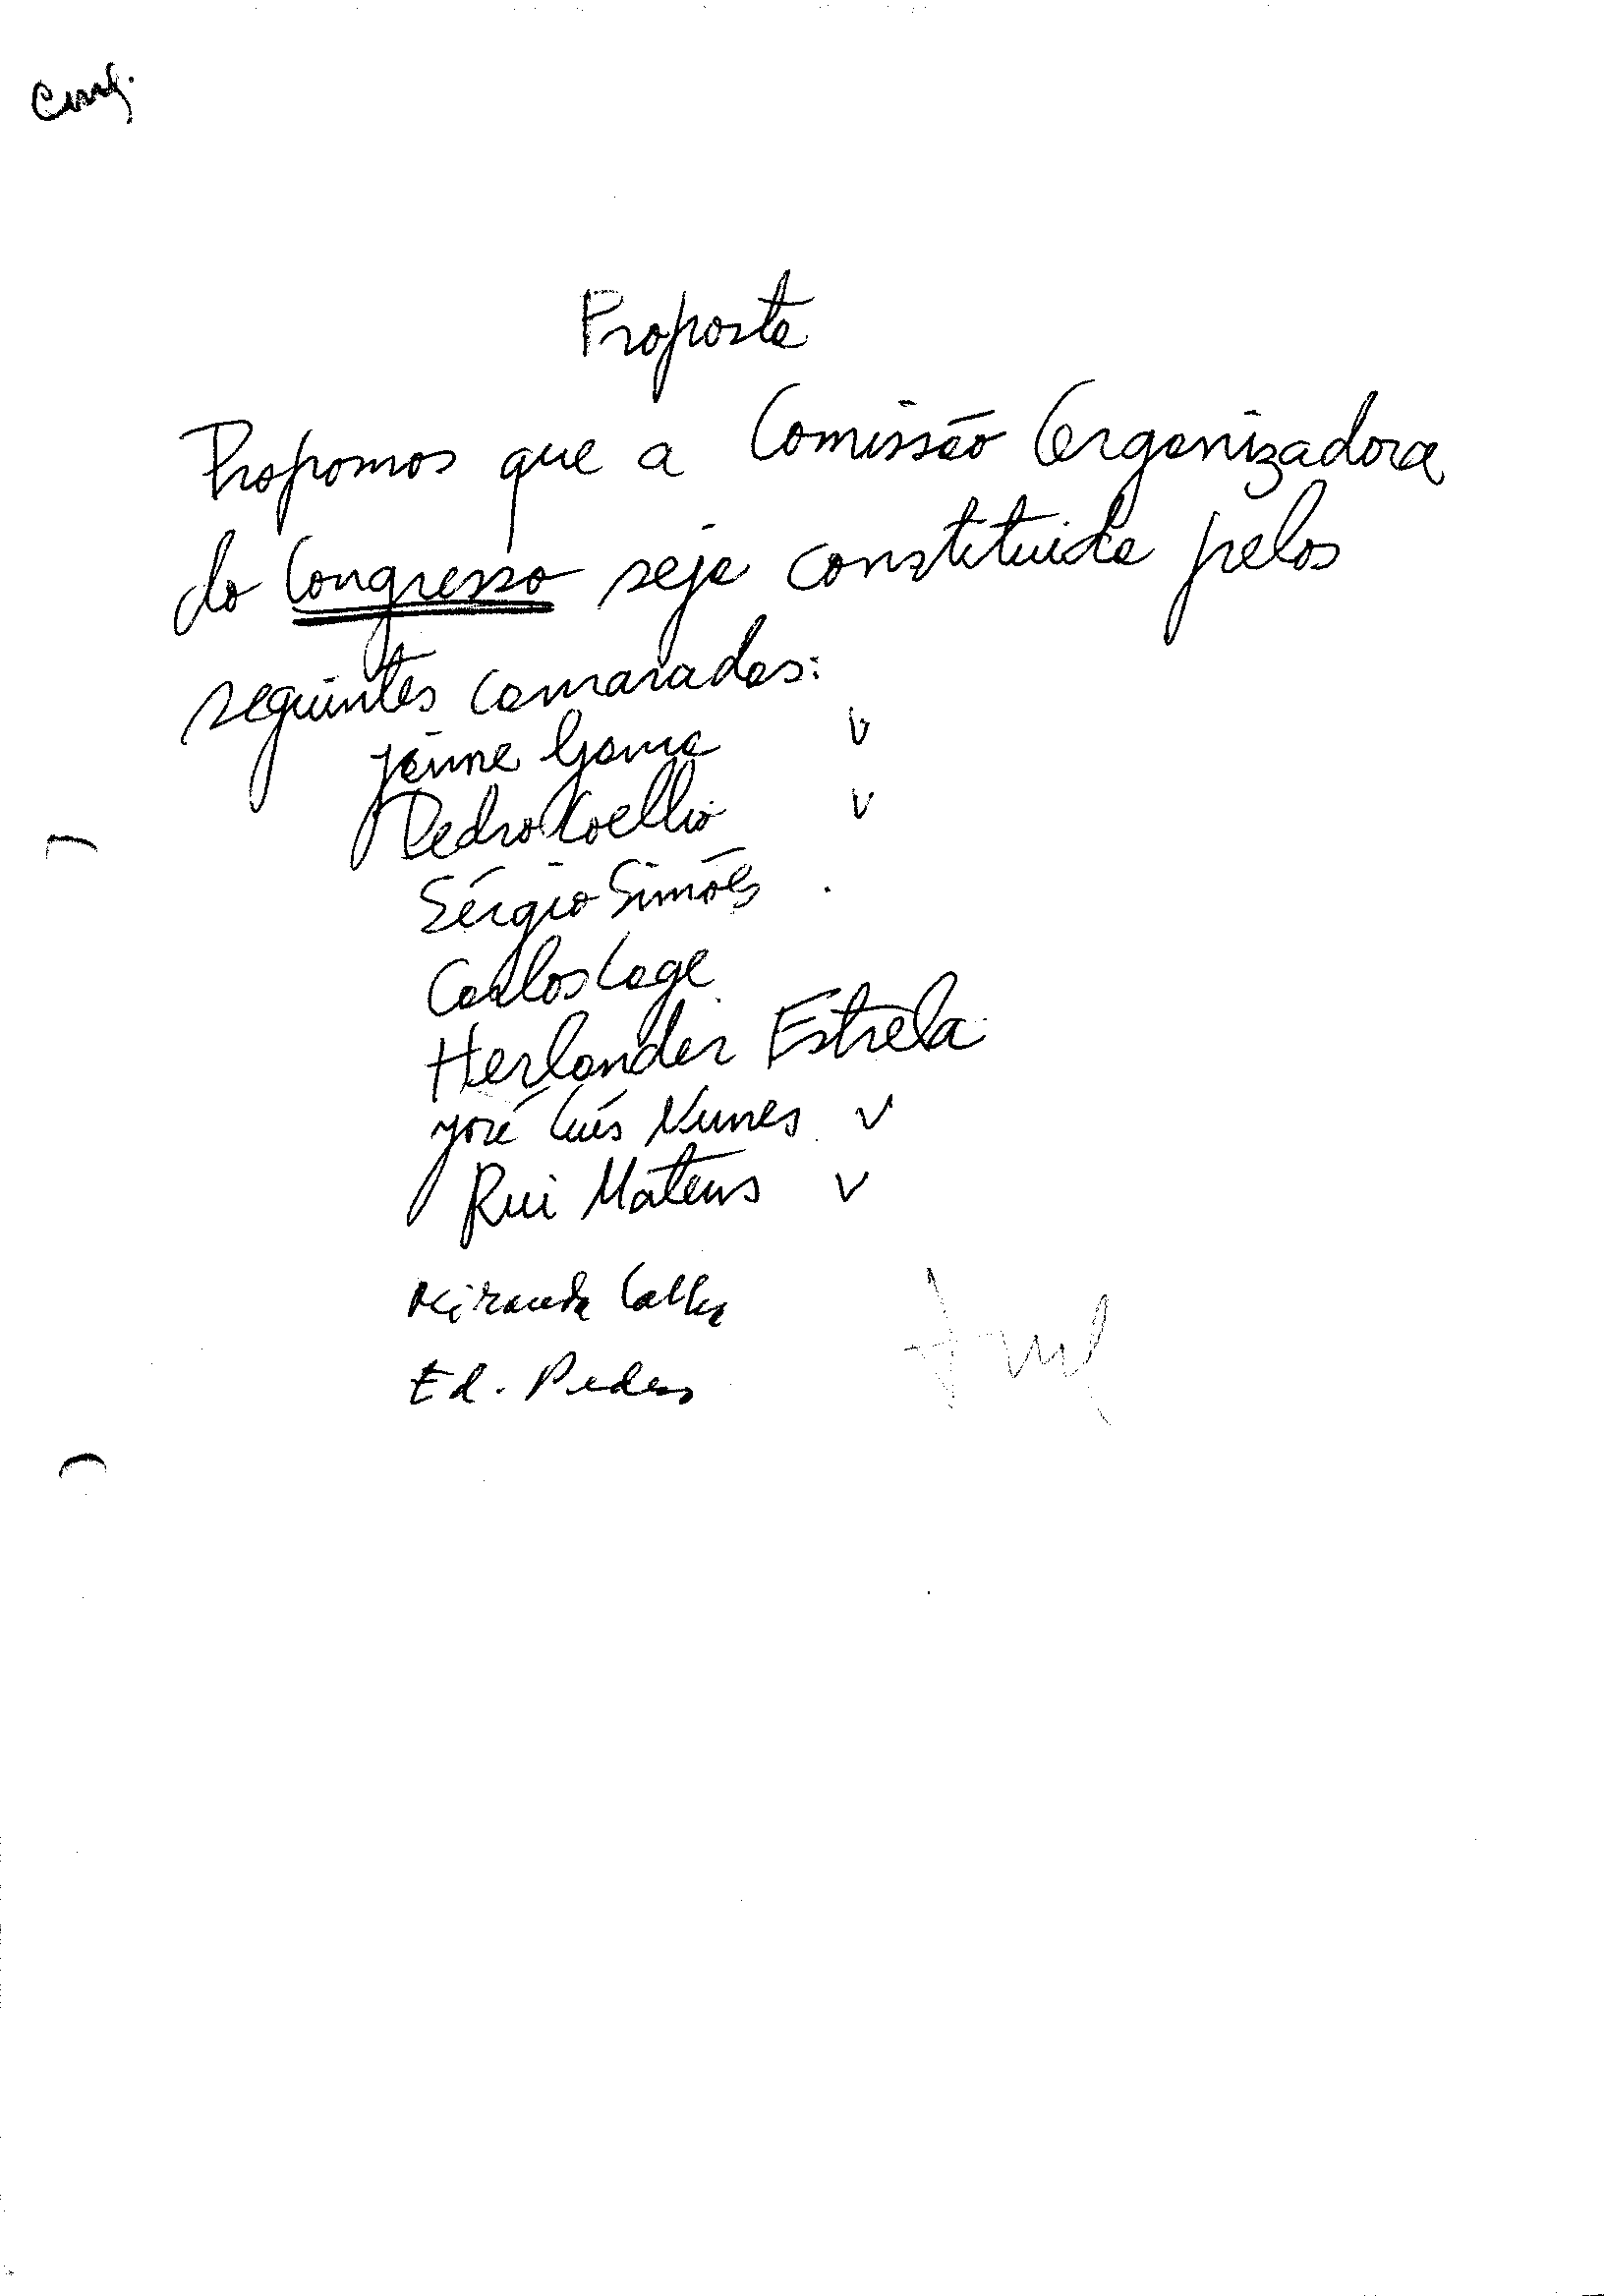 Cong.
Proposta
Propomos que a Comissão Organizadora
do Congresso seja constituida pelos
seguintes camaradas:
Jaime Gama v
Pedro Coelho v
Sérgio Simões .
Carlos Lage
Herlander Estrela
José Luís Nunes v
Rui Mateus v
Miranda Calha
Ed. Pedro